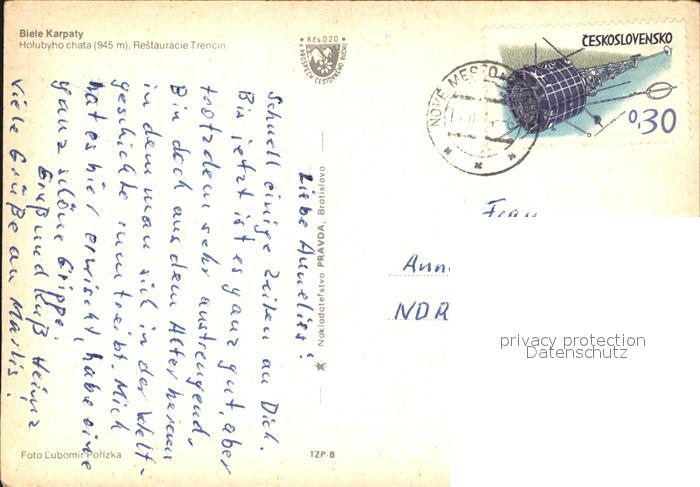 Biele Karpaty
Holubyho chata (945 m), Reštaurácie Trenčín
Kčs 0,20
V PROSPECH CESTOVNÉHO RUCHU
ČESKOSLOVENSKO
0,30
NOVÉ MESTO
Liebe Annelies!
Schnell einige Zeilen an Dich.
Bis jetzt ist es ganz gut, aber
trotzdem sehr anstrengend.
Bin doch aus dem Alter heraus
in dem man sich in der Welt-
geschichte rumtreibt. Mich
hat es hier erwischt, habe eine
ganz schöne Grippe.
Gruß und Kuß Heinz
Viele Grüße an Marlis!
Nakladateľstvo PRAVDA, Bratislava
Frau
Ann
NDR
privacy protection
Datenschutz
Foto Ľubomír Pořízka
TZP-B